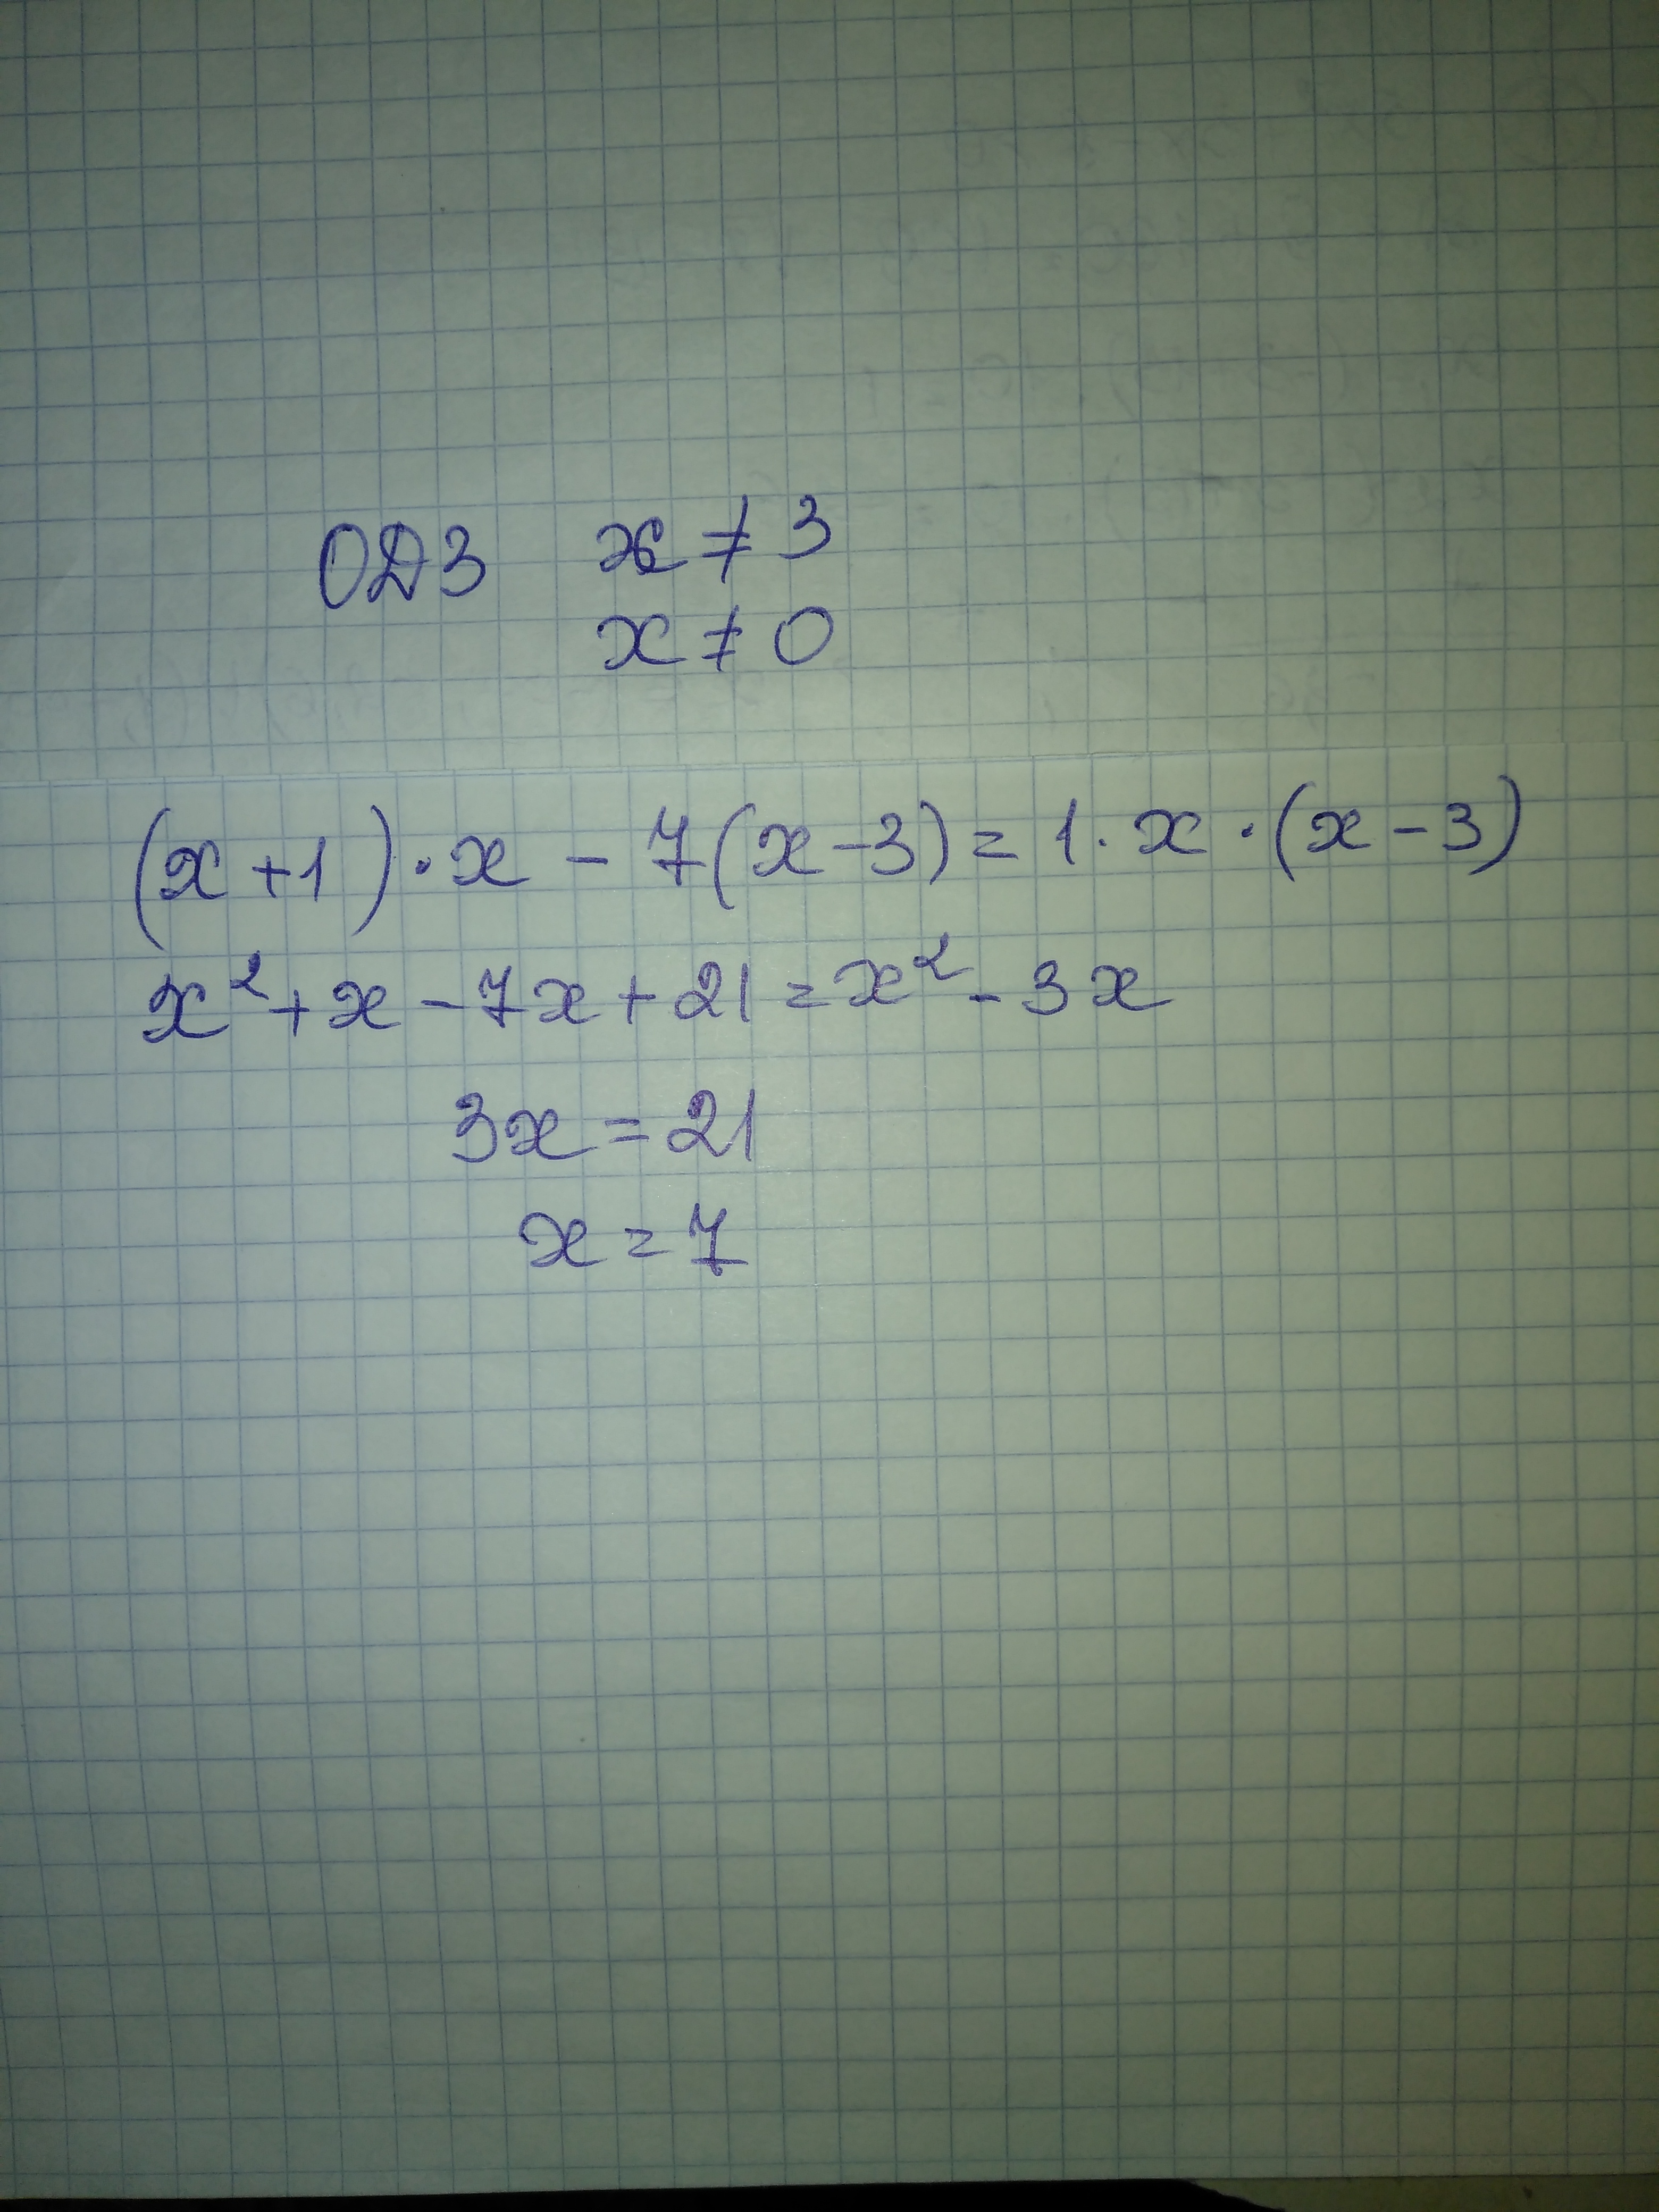 ОДЗ x ≠ 3
x ≠ 0
(x+1)·x - 7(x-3) = 1·x·(x-3)
x²+x-7x+21=x²-3x
3x=21
x=7